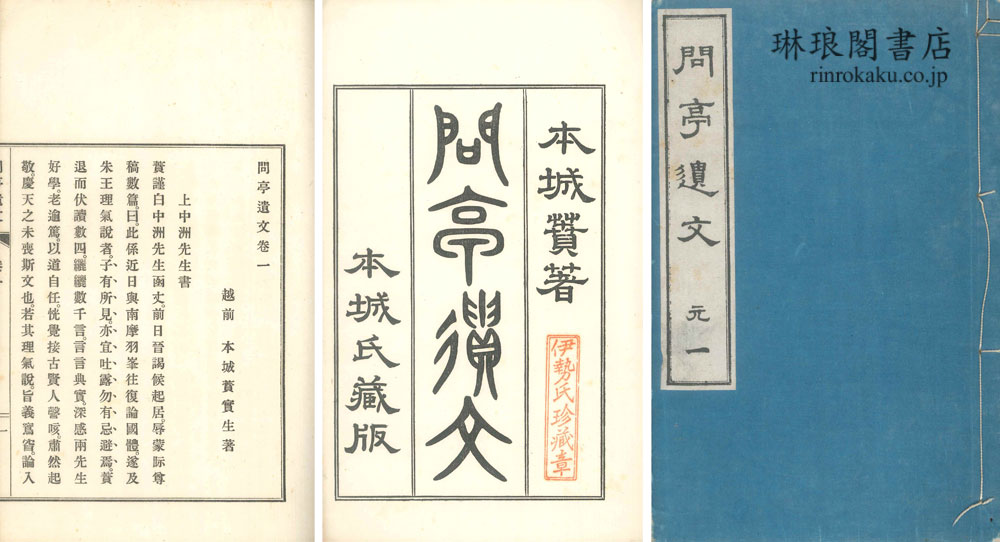 琳琅閣書店
rinrokaku.co.jp
問亭遺文 元 一
本城蕡著
問亭遺文
本城氏藏版
伊勢氏珍藏章
問亭遺文卷一
越前 本城蕡實生著
上中洲先生書
蕡謹白中洲先生函丈。前日晉謁候起居。辱蒙眎尊
稿數篇。曰。此係近日與南摩羽峯往復論國體。遂及
朱王理氣說者。子有所見。亦宜吐露勿有忌避焉。蕡
退而伏讀數四。纚纚數千言。言言典實。深感兩先生
好學。老逾篤。以道自任。恍覺接古賢人謦咳。肅然起
敬。慶天之未喪斯文也。若其理氣說。旨義窵窅。論入